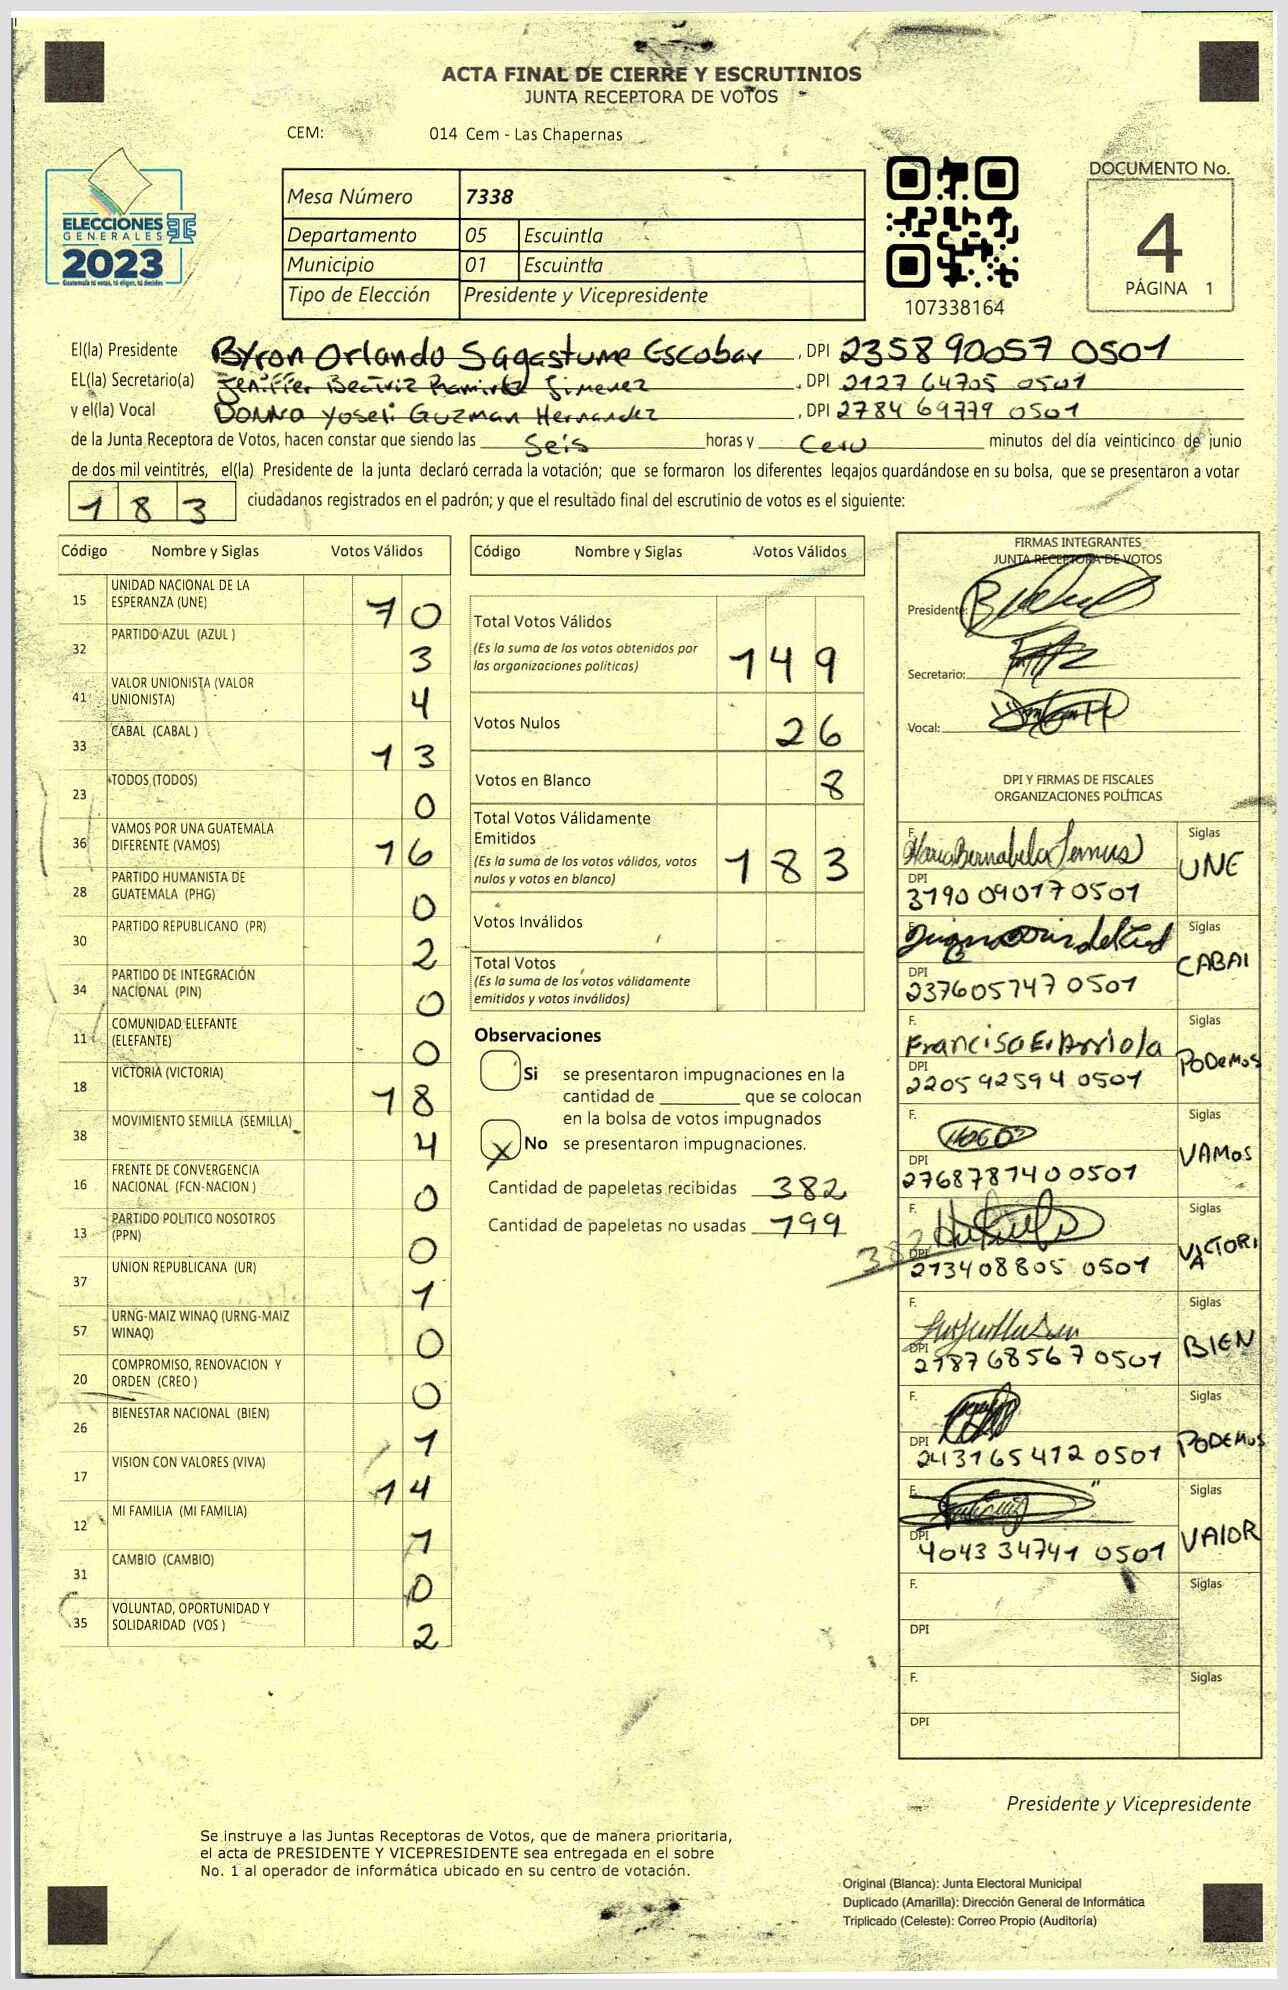 ACTA FINAL DE CIERRE Y ESCRUTINIOS
JUNTA RECEPTORA DE VOTOS
CEM: 014 Cem - Las Chapernas
ELECCIONES
GENERALES
2023
Guatemala tú votas, tú eliges, tú decides
Mesa Número 7338
Departamento 05 Escuintla
Municipio 01 Escuintla
Tipo de Elección Presidente y Vicepresidente
107338164
DOCUMENTO No.
4
PÁGINA 1
El(la) Presidente Byron Orlando Sagastume Escobar, DPI 235890057 0501
EL(la) Secretario(a) Jeniffer Beatriz Ramirez Jimenez, DPI 2127 64705 0501
y el(la) Vocal Donna Yoseli Guzman Hernandez, DPI 2784 69779 0501
de la Junta Receptora de Votos, hacen constar que siendo las Seis horas y Cero minutos del día veinticinco de junio
de dos mil veintitrés, el(la) Presidente de la junta declaró cerrada la votación; que se formaron los diferentes legajos guardándose en su bolsa, que se presentaron a votar
183 ciudadanos registrados en el padrón; y que el resultado final del escrutinio de votos es el siguiente:
Código Nombre y Siglas Votos Válidos
15 UNIDAD NACIONAL DE LA ESPERANZA (UNE) 70
32 PARTIDO AZUL (AZUL ) 3
41 VALOR UNIONISTA (VALOR UNIONISTA) 4
33 CABAL (CABAL ) 13
23 TODOS (TODOS) 0
36 VAMOS POR UNA GUATEMALA DIFERENTE (VAMOS) 16
28 PARTIDO HUMANISTA DE GUATEMALA (PHG) 0
30 PARTIDO REPUBLICANO (PR) 2
34 PARTIDO DE INTEGRACIÓN NACIONAL (PIN) 0
11 COMUNIDAD ELEFANTE (ELEFANTE) 0
18 VICTORIA (VICTORIA) 18
38 MOVIMIENTO SEMILLA (SEMILLA) 4
16 FRENTE DE CONVERGENCIA NACIONAL (FCN-NACION ) 0
13 PARTIDO POLITICO NOSOTROS (PPN) 0
37 UNION REPUBLICANA (UR) 1
57 URNG-MAIZ WINAQ (URNG-MAIZ WINAQ) 0
20 COMPROMISO, RENOVACION Y ORDEN (CREO ) 0
26 BIENESTAR NACIONAL (BIEN) 1
17 VISION CON VALORES (VIVA) 14
12 MI FAMILIA (MI FAMILIA) 1
31 CAMBIO (CAMBIO) 0
35 VOLUNTAD, OPORTUNIDAD Y SOLIDARIDAD (VOS ) 2
Código Nombre y Siglas Votos Válidos
Total Votos Válidos 149
(Es la suma de los votos obtenidos por
las organizaciones políticas)
Votos Nulos 26
Votos en Blanco 8
Total Votos Válidamente
Emitidos 183
(Es la suma de los votos válidos, votos
nulos y votos en blanco)
Votos Inválidos
Total Votos
(Es la suma de los votos válidamente
emitidos y votos inválidos)
Observaciones
Si se presentaron impugnaciones en la
cantidad de ________ que se colocan
en la bolsa de votos impugnados
X No se presentaron impugnaciones.
Cantidad de papeletas recibidas 382
Cantidad de papeletas no usadas 199
382
FIRMAS INTEGRANTES
JUNTA RECEPTORA DE VOTOS
Presidente:
Secretario:
Vocal:
DPI Y FIRMAS DE FISCALES
ORGANIZACIONES POLÍTICAS
F. Siglas UNE
DPI 3190 09017 0501
F. Siglas CABAl
DPI 237605747 0501
F. Francisa E. Arriola Siglas PODEMOS
DPI 220592594 0501
F. Siglas VAMOS
DPI 276878740 0501
F. Siglas VICTORIA
DPI 213408805 0501
F. Siglas BIEN
DPI 2187 68567 0501
F. Siglas PODEMOS
DPI 243165412 0501
F. Siglas VAlOR
DPI 4043 34741 0501
F. Siglas
DPI
F. Siglas
DPI
Presidente y Vicepresidente
Se instruye a las Juntas Receptoras de Votos, que de manera prioritaria,
el acta de PRESIDENTE Y VICEPRESIDENTE sea entregada en el sobre
No. 1 al operador de informática ubicado en su centro de votación.
Original (Blanca): Junta Electoral Municipal
Duplicado (Amarilla): Dirección General de Informática
Triplicado (Celeste): Correo Propio (Auditoría)